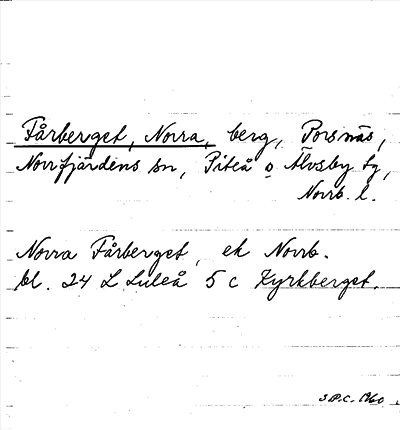 Fårberget, Norra, berg, Porsnäs,
Norrfjärdens sn, Piteå o Älvsby tg,
Norrb. l.
Norra Fårberget, ek Norrb.
bl. 24 L Luleå 5 c Kyrkberget.
S.P.C. 1960